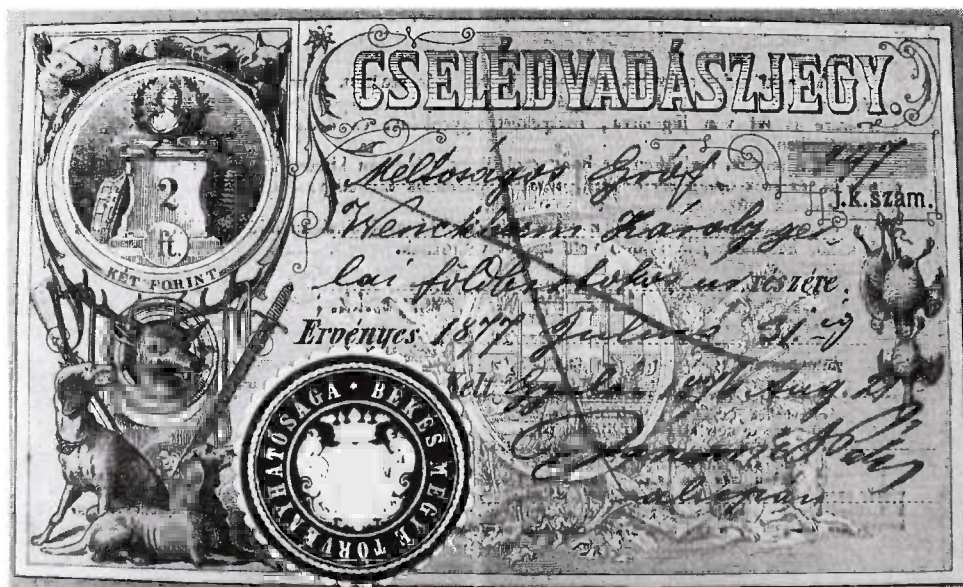 CSELÉDVADÁSZJEGY.
Méltóságos Gróf
j.k.szám.
Wenckheim Károly gyu-
lai földbirtokos ur részére.
Érvényes 1877 Julius 31-ig
Kelt Gyulán 1876 Aug. 2
alispán
2
ft.
KÉT FORINT
BÉKÉS MEGYE TÖRVÉNYHATÓSÁGA